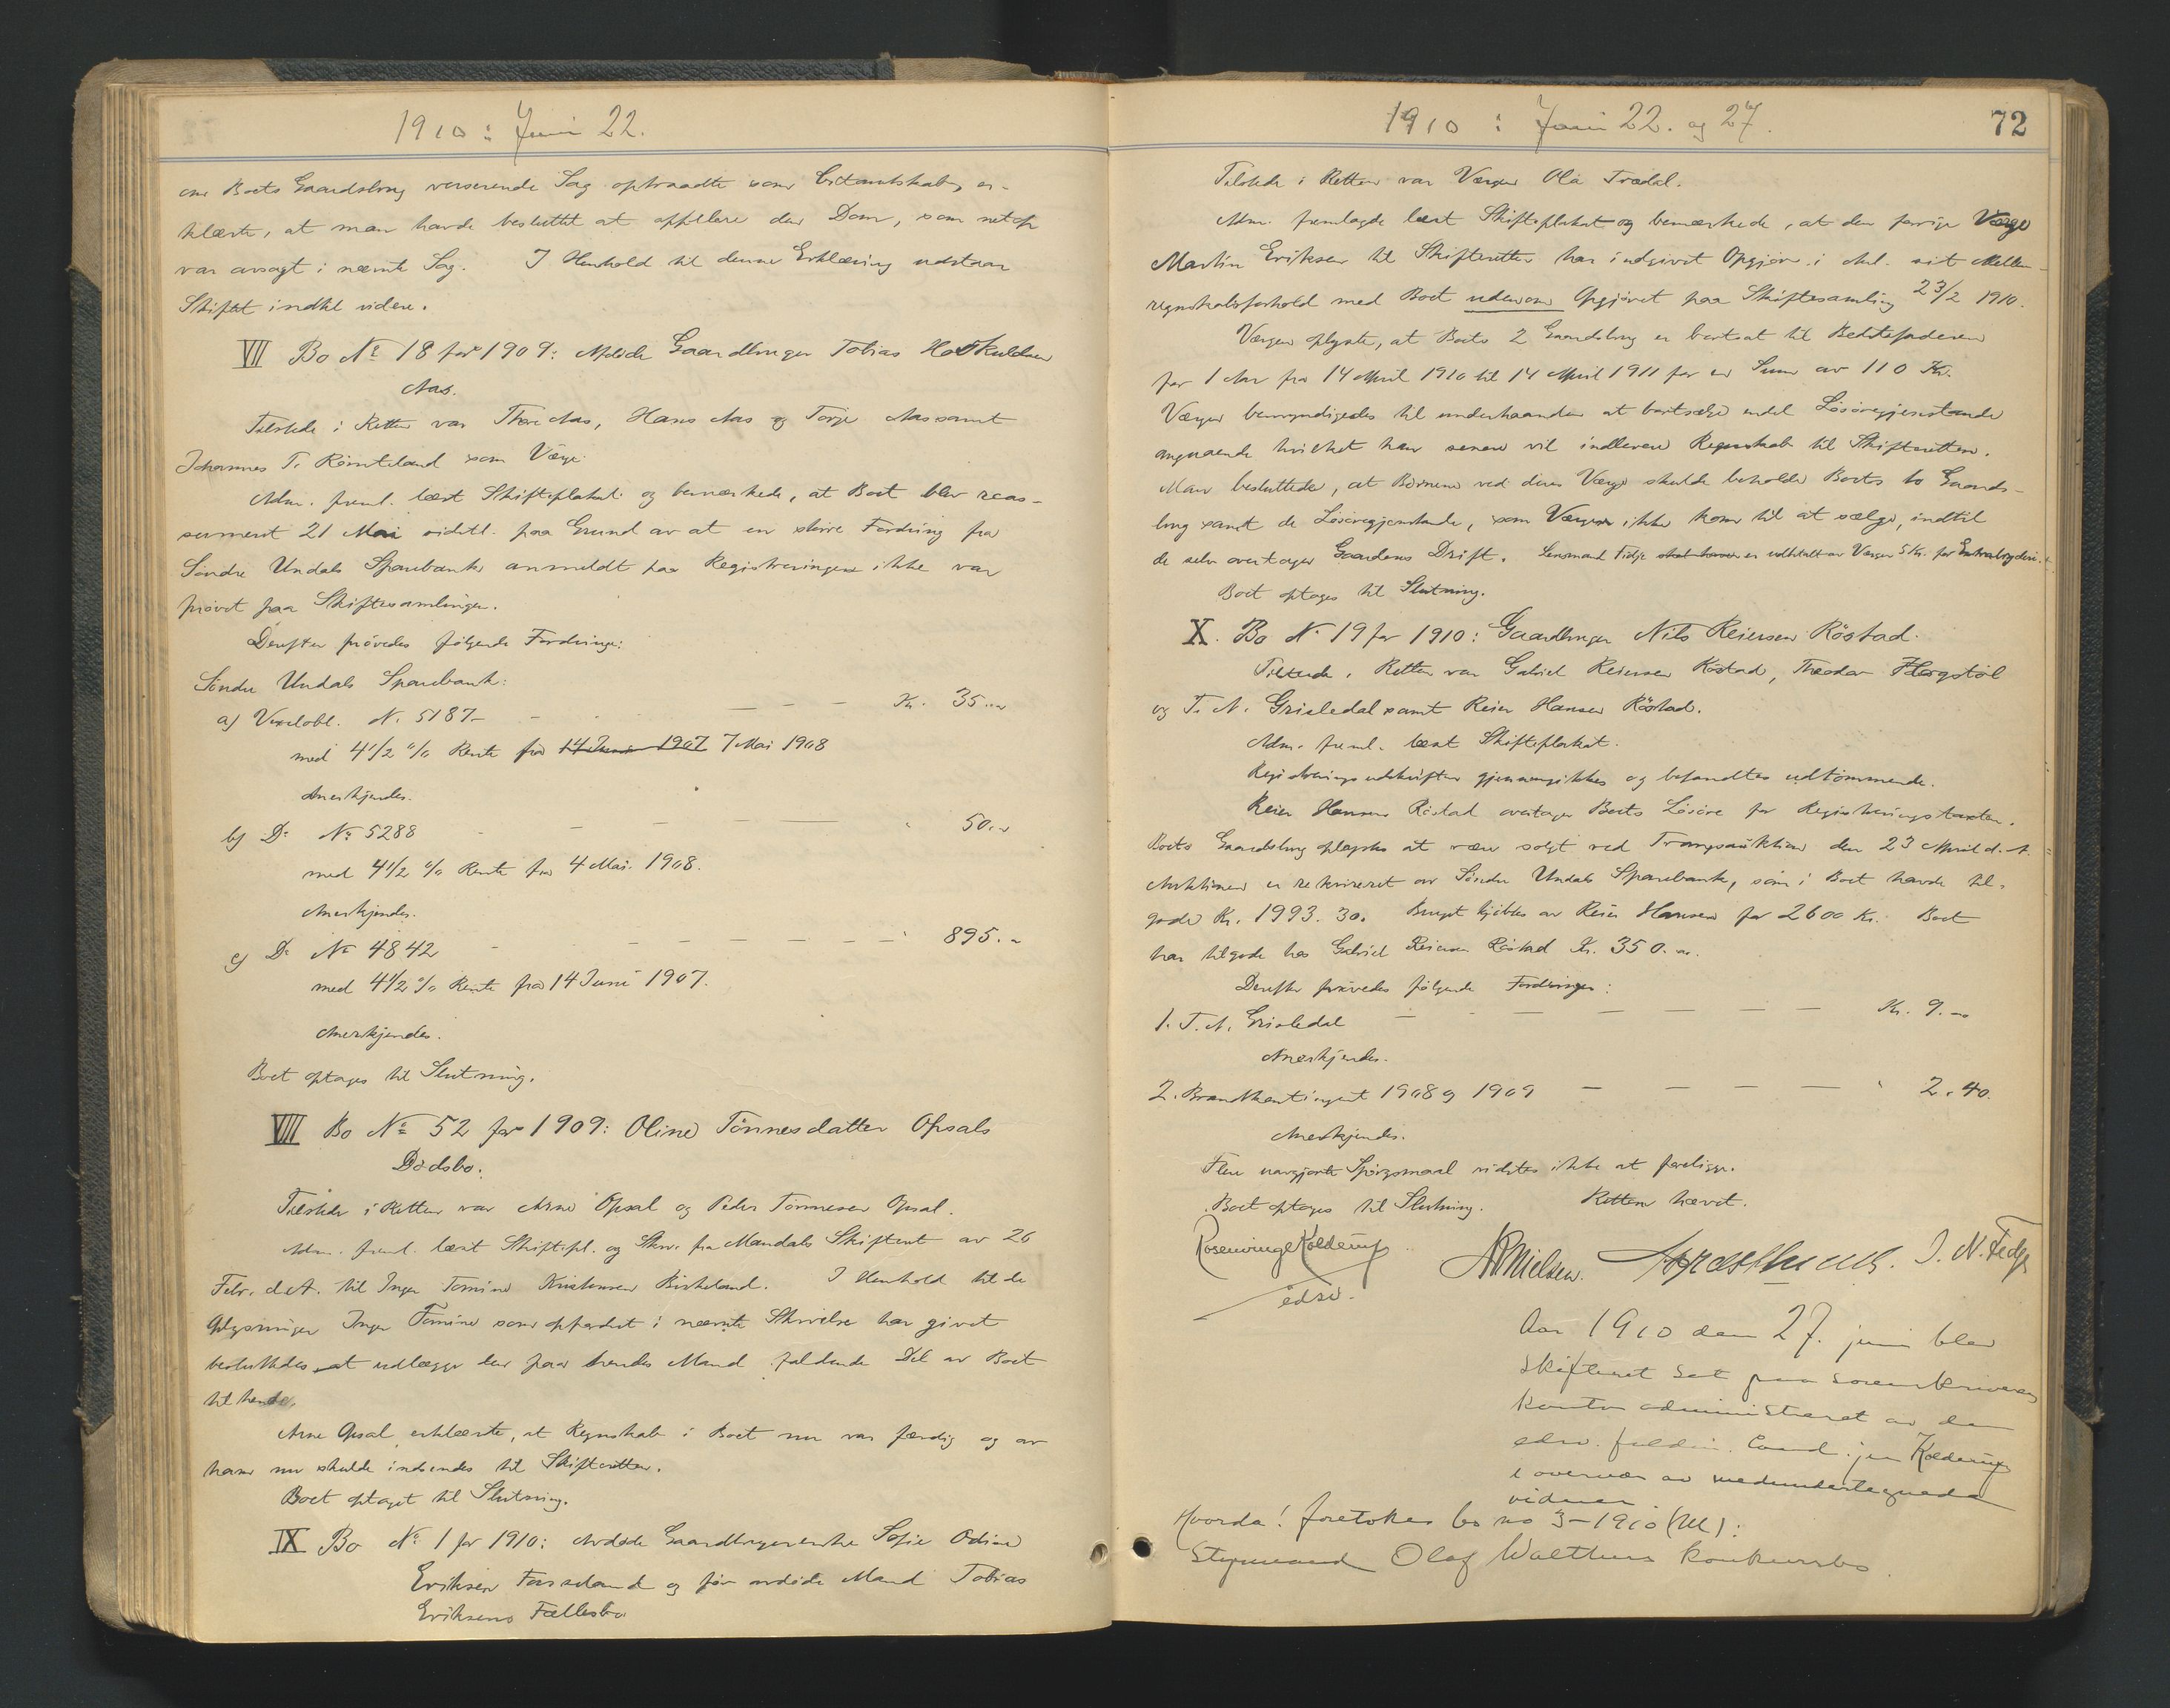 1910 : Juni 22.
om Boets Gaardsbrug verserende Sag optraadte som er-
klærte, at man havde besluttet at appellere den Dom, som netop
var avsagt i nævnte Sag. I Henhold til denne Erklæring udstaar
Skiftet indtil videre.
VII Bo No 18 for 1909: Afdøde Gaardbruger Tobias Hoskuldsen
Aas.
Tilstede i Retten var Thore Aas, Hans Aas og Torje Aas samt
Johannes T. Rømteland som Værge.
Adm. freml. læst Skifteplakat og bemærkede, at Boet blev reas-
sumeret 21 Mai sidstl. paa Grund av at en større Fordring fra
Søndre Undals Sparebank anmeldt paa Registreringen ikke var
prøvet paa Skiftesamlingen.
Derefter prøvedes følgende Fordringer:
Søndre Undals Sparebank:
a) Vexelobl. N. 5187 - - - - - Kr. 35.00
med 4 1/2 % Rente fra 14 Juni 1907 7 Mai 1908
Anerkjendes.
b) Do No 5288 - - - - - " 50.00
med 4 1/2 % Rente fra 4 Mai 1908.
Anerkjendes.
c) Do No 4842 - - - - - - - " 895.00
med 4 1/2 % Rente fra 14 Juni 1907.
Anerkjendes.
Boet optages til Slutning.
VIII Bo No 52 for 1909: Oline Tønnesdatter Opsals
Dødsbo.
Tilstede i Retten var Arne Opsal og Peder Tønnesen Opsal.
Adm. freml. læst Skiftepl. og Skr. fra Mandals Skifteret av 26
Febr. d.A. til Inger Tomine Kristensen Birkeland. I Henhold til de
Oplysninger Inger Tomine som opfordret i nævnte Skrivelse har givet
besluttedes at udlægge den paa hendes Mand faldende Del av Boet
til hende.
Arne Opsal erklærte, at Regnskab i Boet nu var færdig og av
ham nu skulde indsendes til Skifteretten.
Boet optaget til Slutning.
IX Bo No 1 for 1910: Avdøde Gaardbrugerenke Sofie Odine
Eriksen Fasseland og før avdøde Mand Tobias
Eriksens Fællesbo
1910 : Juni 22. og 27.
72
Tilstede i Retten var Værgen Ola Trædal.
Adm. fremlagde læst Skifteplakat og bemærkede, at den forrige Værge
Martin Eriksen til Skifteretten har indgivet Opgjør i Anl. sit Mellem-
regnskabsforhold med Boet udenom Opgjøret paa Skiftesamling 23/2 1910.
Værgen oplyste, at Boets 2 Gaardsbrug er bortsat til Bedstefaderen
for 1 Aar fra 14 April 1910 til 14 April 1911 for en Sum av 110 Kr.
Værgen bemyndigedes til underhaanden at bortsælge endel Løsøregjenstande
angaaende hvilket han senere vil indlevere Regnskab til Skifteretten.
Man besluttede, at Børnene ved deres Værge skulde beholde Boets to Gaards-
brug samt de Løsøregjenstande, som Værgen ikke kom til at sælge, indtil
de selv overtager Gaardens Drift. Lensmand Fidje er udbetalt av Værgen 5 Kr. for
Boet optages til Slutning.
X. Bo No 19 for 1910: Gaardbruger Nils Reiersen Röstad.
Tilstede i Retten var Gabriel Reiersen Röstad, Theodor
og T. N. Grisledal samt Reier Hansen Röstad.
Adm. freml. læst Skifteplakat.
Registreringsudskriften gjennemgikkes og befandtes udtømmende.
Reier Hansen Röstad overtager Boets Løsøre for Registreringstaxten.
Boets Gaardsbrug oplystes at være solgt ved Tvangsauktion den 23 April d. A.
Auktionen er rekvireret av Søndre Undals Sparebank, som i Boet havde til-
gode Kr. 1993.30. Bruget kjøbtes av Reier Hansen for 2600 Kr. Boet
har tilgode hos Gabriel Reiersen Röstad Kr. 350.00.
Derefter prøvedes følgende Fordringer:
1. T. N. Grisledal - - - - - - - - Kr. 9.00
Anerkjendes.
2. Brandkontingent 1908 og 1909 - - - - " 2.40.
Anerkjendes.
Flere uavgjorte Spørgsmaal vidstes ikke at foreligge.
Boet optages til Slutning. Retten hævet.
Rosenvinge Kolderup
edsv.
Nielsen. J. N. Fidje
Aar 1910 den 27. juni blev
skifteret sat paa sorenskriverens
kontor administreret av den
edsv. fuldm. Cand. jur Kolderup
i overvær av medundertegnede
vidner
Hvorda! foretokes bo no 3-1910 (M):
Styrmand Olaf Walthers konkursbo.